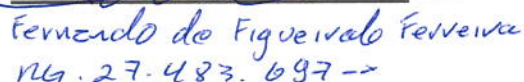 Fernando de Figueiredo Ferreira
RG. 27.483.697-x